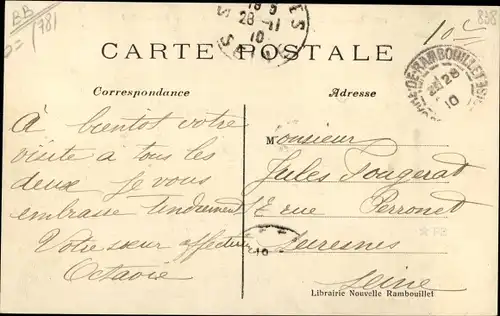 BB
1781
838
10 c
28 - 11
10
CARTE POSTALE
RAMBOUILLET
28
10
Correspondance
Adresse
À bientôt votre
visite à tous les
deux je vous
embrasse tendrement
Votre sœur affect
Octavie
Monsieur
Jules Fougerat
2 rue Perronet
Suresnes
Seine
10
F3
Librairie Nouvelle Rambouillet